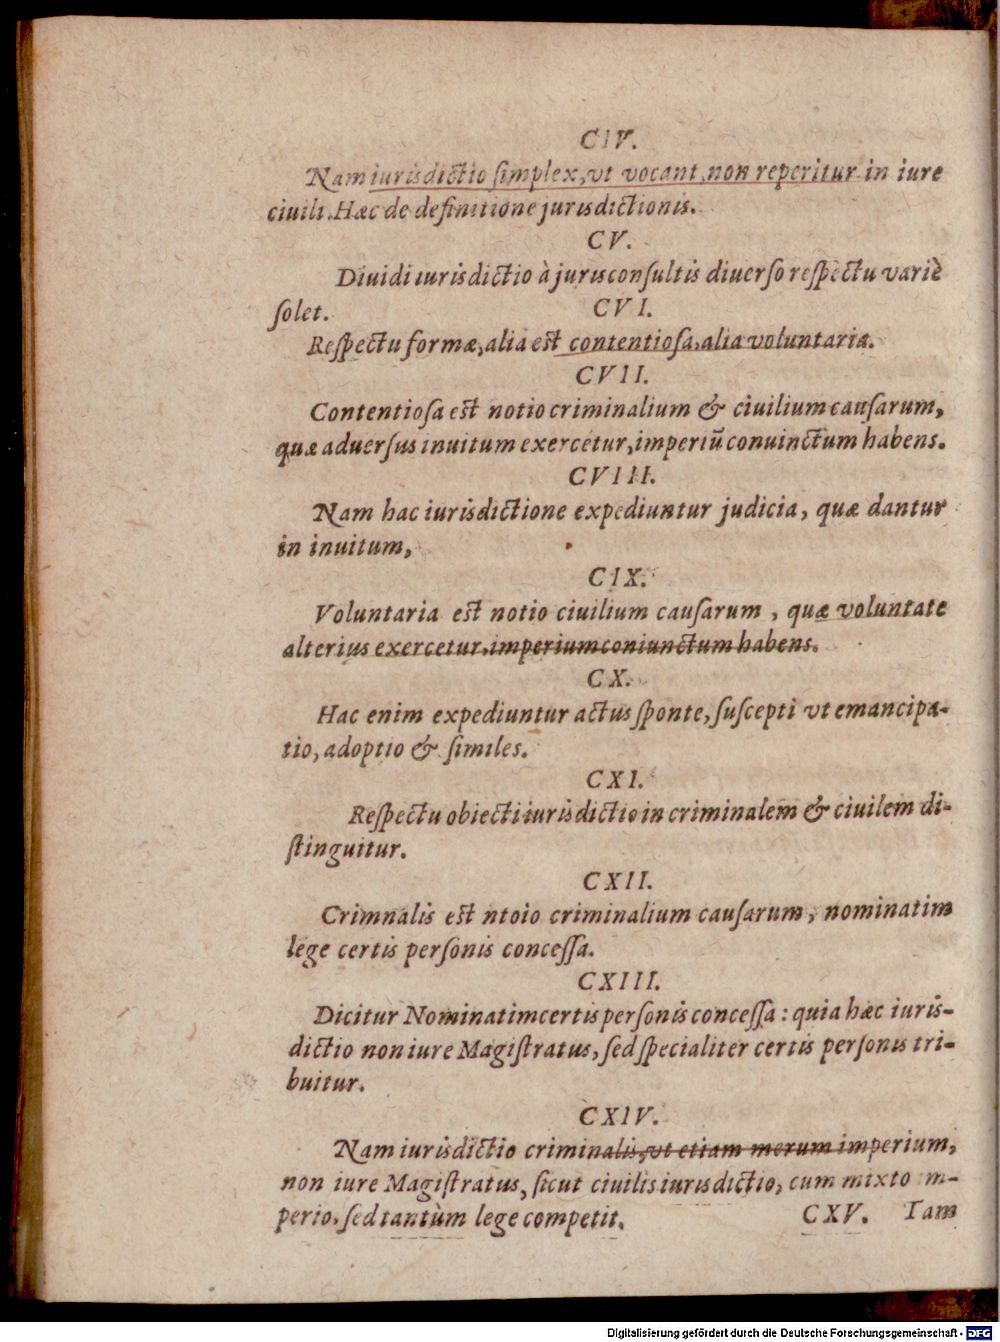 CIV.
Nam iurisdictio ſimplex, vt vocant, non reperitur in iure
ciuili. Hæc de definitione jurisdictionis.
CV.
Diuidi iurisdictio à jurisconſultis diuerſo reſpectu variè
ſolet. CVI.
Reſpectu formæ, alia est contentioſa, alia voluntaria.
CVII.
Contentioſa est notio criminalium & ciuilium cauſarum,
quæ aduerſus inuitum exercetur, imperiũ conuinctum habens.
CVIII.
Nam hac iurisdictione expediuntur judicia, quæ dantur
in inuitum,
CIX.
Voluntaria est notio ciuilium cauſarum, quæ voluntate
alterius exercetur, imperium coniunctum habens.
CX.
Hac enim expediuntur actus ſponte, ſuſcepti vt emancipa-
tio, adoptio & ſimiles.
CXI.
Reſpectu obiecti iurisdictio in criminalem & ciuilem di-
ſtinguitur.
CXII.
Crimnalis est ntoio criminalium cauſarum, nominatim
lege certis perſonis conceſſa.
CXIII.
Dicitur Nominatim certis perſonis conceſſa: quia hæc iuris-
dictio non iure Magiſtratus, ſed ſpecialiter certis perſonis tri-
buitur.
CXIV.
Nam iurisdictio criminalis, vt etiam merum imperium,
non iure Magiſtratus, ſicut ciuilis iurisdictio, cum mixto m-
perio, ſed tantùm lege competit. CXV. Iam
Digitalisierung gefördert durch die Deutsche Forschungsgemeinschaft - DFG